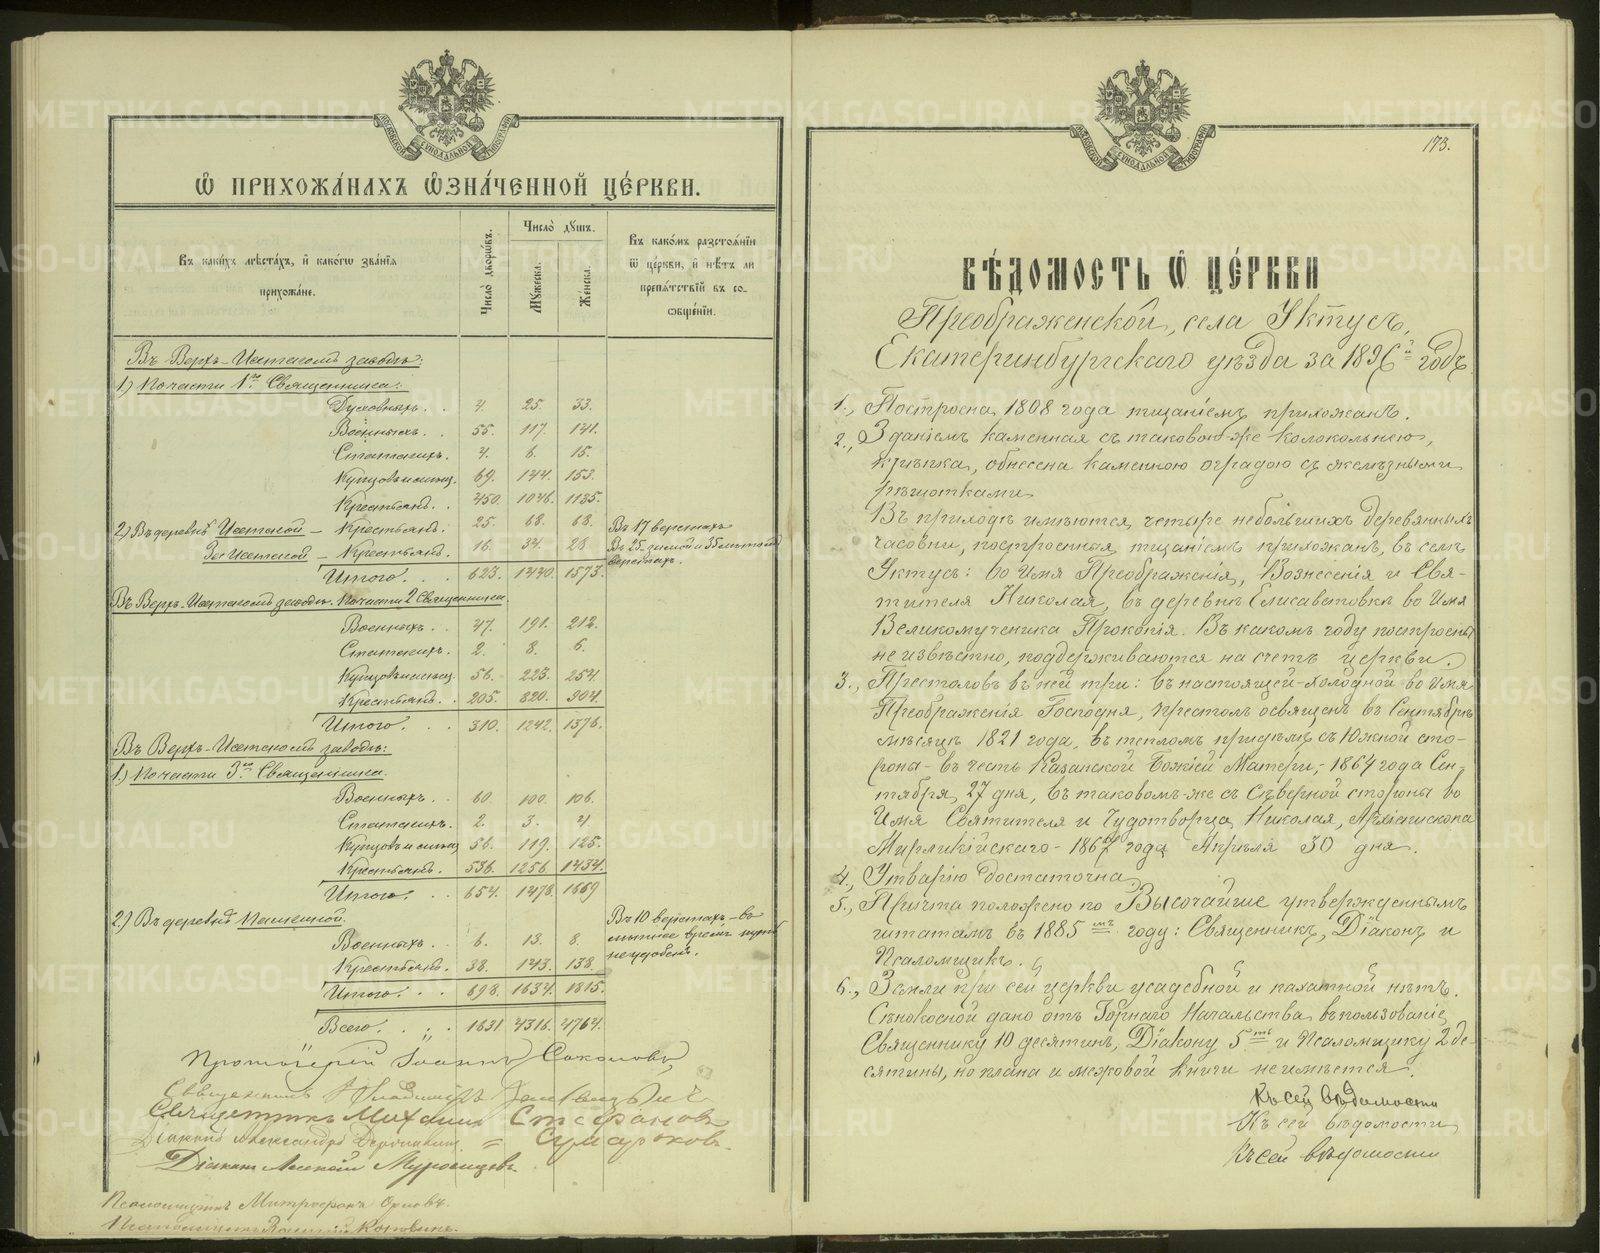 Ѿ ПРИХОЖА́НАХЪ Ѡ҆ЗНА́ЧЕННОЙ ЦЕ́РКВИ.
Въ каки́хъ мѣста́хъ, и҆ како́гѡ зва́нїѧ прихожа́не.
Число̀ дворѡ́въ.
Число̀ дꙋ́шъ.
Мꙋ́жеска.
Же́нска.
Въ како́мъ разстоѧ́нїи ѿ це́ркви, и҆ нѣ́тъ ли препѧ́тствїй въ со-ѡбще́нїи.
Въ Верхъ-Исетскомъ заводѣ:
1) По части 1го Священника:
Духовныхъ. . 4. 25. 33.
Военныхъ. . 55. 117. 141.
Статскихъ. 4. 6. 15.
Купцовъ и мѣщ. 69. 144. 153.
Крестьянъ. . 450. 1046. 1135.
2) Въ деревнѣ Исетской – Крестьянъ. 25. 68. 68. Въ 17 верстахъ
Крестьянъ. 16. 34. 28. Въ 25 зимой и 35 лѣтомъ верстахъ.
Итого. . . 623. 1440. 1573.
Въ Верхъ-Исетскомъ заводѣ. По части 2 Священника
Военныхъ. . 47. 191. 212.
Статскихъ. 2. 8. 6.
Купцовъ и мѣщ. 56. 223. 254.
Крестьянъ. . 205. 820. 904.
Итого. . . 310. 1242. 1376.
Въ Верхъ-Исетскомъ заводѣ:
1) По части 3го Священника.
Военныхъ. . 60. 100. 106.
Статскихъ. 2. 3. 4.
Купцовъ и мѣщ. 56. 119. 125.
Крестьянъ. 536. 1256. 1434.
Итого. . . 654. 1478. 1669
2) Въ деревнѣ Въ 10 верстахъ – во
Военныхъ . . 6. 13. 8. время путь
Крестьянъ. 38. 143. 138. неудобенъ.
Итого. . . 698. 1634. 1815.
Всего. . . 1631. 4316. 4764.
Протоіерей Іоаннъ Соколовъ
Священникъ Владиміръ
Священникъ Михаилъ Стефановъ
Діаконъ Александръ Сумароковъ.
Діаконъ Алексій
Псаломщикъ Митрофанъ Орловъ.
Псаломщикъ
173.
ВѢ́ДОМОСТЬ Ѿ ЦЕ́РКВИ
Преображенской, села Уктусъ,
Екатеринбургскаго уѣзда за 1896й годъ.
1., Построена 1808 года тщаніемъ прихожанъ.
2., Зданіемъ каменная съ таковою-же колокольнею,
крѣпка, обнесена каменною оградою съ желѣзными
рѣшотками.
Въ приходѣ имѣются четыре небольшихъ деревянныхъ
часовни, построенныя тщаніемъ прихожанъ, въ селѣ
Уктусъ: во Имя Преображенія, Вознесенія и Свя-
тителя Николая, въ деревнѣ Елисаветовкѣ во Имя
Великомученика Прокопія. Въ какомъ году построены
не извѣстно, поддерживаются на счетъ церкви.
3., Престоловъ въ ней три: въ настоящей-холодной во Имя
Преображенія Господня, престолъ освященъ въ Сентябрѣ
мѣсяцѣ 1821 года, въ тепломъ придѣлѣ съ Южной сто-
роны – въ честь Казанской Божіей Матери, – 1864 года Сен-
тября 27 дня, въ таковомъ-же съ Сѣверной стороны во
Имя Святителя и Чудотворца Николая, Архіепископа
Мирликійскаго – 1867 года Апрѣля 30 дня.
4., Утварію достаточна.
5., Причта положено по Высочайше утвержденнымъ
штатамъ въ 1885мъ году: Священникъ, Діаконъ и
Псаломщикъ.
6., Земли при сей церкви усадебной и пахатной нѣтъ.
Сѣнокосной дано отъ Горнаго Начальства въ пользованіе
Священнику 10 десятинъ, Діакону 5ть и Псаломщику 2 де-
сятины, но плана и межовой книги не имѣется.
Къ сей вѣдомости
Къ сей вѣдомости
Къ сей вѣдомости